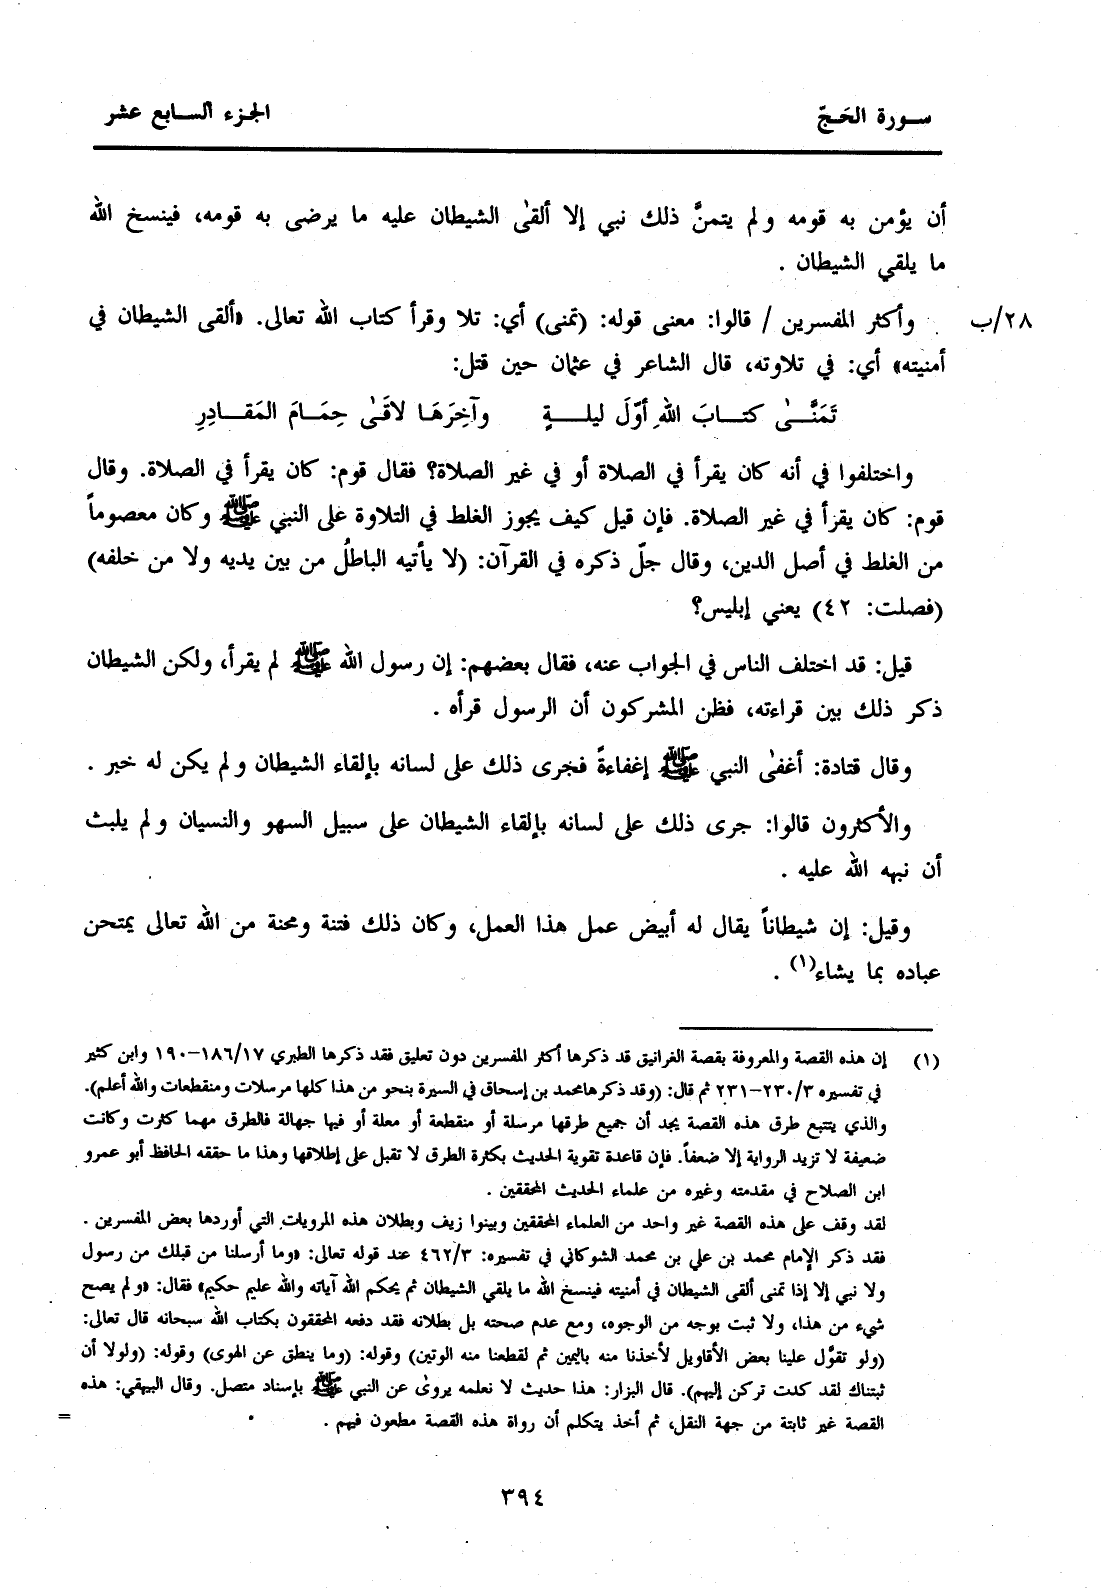 سورة الحَجّ
الجزء السابع عشر
أن يؤمن به قومه ولم يتمنَّ ذلك نبي إلا ألقىٰ الشيطان عليه ما يرضى به قومه، فينسخ الله
ما يلقي الشيطان .
٢٨/ب
وأكثر المفسرين / قالوا: معنى قوله: (تمنى) أي: تلا وقرأ كتاب الله تعالى. «ألقى الشيطان في
أمنيته» أي: في تلاوته، قال الشاعر في عثمان حين قتل:
تَمَنَّىٰ كتابَ اللهِ أوّلَ ليلةٍ وآخِرَهَا لاقَىٰ حِمَامَ المَقادِرِ
واختلفوا في أنه كان يقرأ في الصلاة أو في غير الصلاة؟ فقال قوم: كان يقرأ في الصلاة. وقال
قوم: كان يقرأ في غير الصلاة. فإن قيل كيف يجوز الغلط في التلاوة على النبي ﷺ وكان معصوماً
من الغلط في أصل الدين، وقال جلّ ذكره في القرآن: (لا يأتيه الباطلُ من بين يديه ولا من خلفه)
(فصلت: ٤٢) يعني إبليس؟
قيل: قد اختلف الناس في الجواب عنه، فقال بعضهم: إن رسول الله ﷺ لم يقرأ، ولكن الشيطان
ذكر ذلك بين قراءته، فظن المشركون أن الرسول قرأه .
وقال قتادة: أغفىٰ النبي ﷺ إغفاءةً فجرى ذلك على لسانه بإلقاء الشيطان ولم يكن له خبر .
والأكثرون قالوا: جرى ذلك على لسانه بإلقاء الشيطان على سبيل السهو والنسيان ولم يلبث
أن نبهه الله عليه .
وقيل: إن شيطاناً يقال له أبيض عمل هذا العمل، وكان ذلك فتنة ومحنة من الله تعالى يمتحن
عباده بما يشاء(١) .
(١) إن هذه القصة والمعروفة بقصة الغرانيق قد ذكرها أكثر المفسرين دون تعليق فقد ذكرها الطبري ١٧/١٨٦-١٩٠ وابن كثير
في تفسيره ٣/٢٣٠-٢٣١ ثم قال: (وقد ذكرها محمد بن إسحاق في السيرة بنحو من هذا كلها مرسلات ومنقطعات والله أعلم).
والذي يتتبع طرق هذه القصة يجد أن جميع طرقها مرسلة أو منقطعة أو معلة أو فيها جهالة فالطرق مهما كثرت وكانت
ضعيفة لا تزيد الرواية إلا ضعفاً. فإن قاعدة تقوية الحديث بكثرة الطرق لا تقبل على إطلاقها وهذا ما حققه الحافظ أبو عمرو
ابن الصلاح في مقدمته وغيره من علماء الحديث المحققين .
لقد وقف على هذه القصة غير واحد من العلماء المحققين وبينوا زيف وبطلان هذه المرويات التي أوردها بعض المفسرين .
فقد ذكر الإمام محمد بن علي بن محمد الشوكاني في تفسيره: ٣/٤٦٢ عند قوله تعالى: «وما أرسلنا من قبلك من رسول
ولا نبي إلا إذا تمنى ألقى الشيطان في أمنيته فينسخ الله ما يلقي الشيطان ثم يحكم الله آياته والله عليم حكيم» فقال: «ولم يصح
شيء من هذا، ولا ثبت بوجه من الوجوه، ومع عدم صحته بل بطلانه فقد دفعه المحققون بكتاب الله سبحانه قال تعالى:
(ولو تقوَّل علينا بعض الأقاويل لأخذنا منه باليمين ثم لقطعنا منه الوتين) وقوله: (وما ينطق عن الهوى) وقوله: (ولولا أن
ثبتناك لقد كدت تركن إليهم). قال البزار: هذا حديث لا نعلمه يروىٰ عن النبي ﷺ بإسناد متصل. وقال البيهقي: هذه
القصة غير ثابتة من جهة النقل، ثم أخذ يتكلم أن رواة هذه القصة مطعون فيهم .
=
٣٩٤